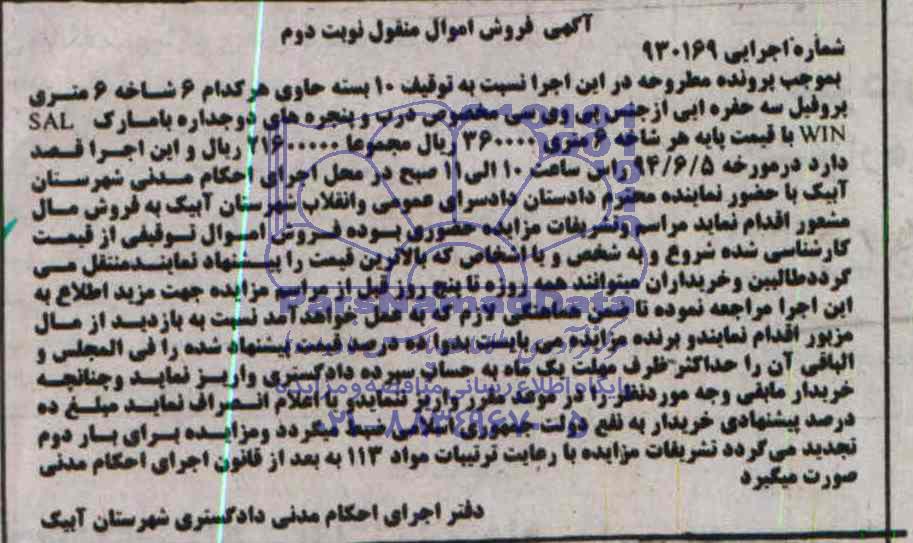 آگهی فروش اموال منقول نوبت دوم
شماره اجرایی ۹۳۰۱۶۹
بموجب پرونده مطروحه در این اجرا نسبت به توقیف ۱۰ بسته حاوی هرکدام ۶ شاخه ۶ متری
پروفیل سه حفره ایی ازجنس پی وی سی مخصوص درب و پنجره های دوجداره بامارک SAL
WIN با قیمت پایه هر شاخه ۶ متری ۳۶۰۰۰۰ ریال مجموعا ۲۱۶۰۰۰۰۰ ریال و این اجرا قصد
دارد درمورخه ۹۴/۶/۵ راس ساعت ۱۰ الی ۱۱ صبح در محل اجرای احکام مدنی شهرستان
آبیک با حضور نماینده محترم دادستان دادسرای عمومی وانقلاب شهرستان آبیک به فروش مال
مشعور اقدام نماید مراسم وتشریفات مزایده حضوری بوده فروش اموال توقیفی از قیمت
کارشناسی شده شروع و به شخص و یا اشخاص که بالاترین قیمت را پیشنهاد نمایندمنتقل می
گرددطالبین وخریداران میتوانند همه روزه تا پنج روز قبل از مراسم مزایده جهت مزید اطلاع به
این اجرا مراجعه نموده تا ضمن هماهنگی لازم که به عمل خواهدآمد نسبت به بازدید از مال
مزبور اقدام نمایندو برنده مزایده می بایست بدوا ده درصد قیمت پیشنهاد شده را فی المجلس و
الباقی آن را حداکثر ظرف مهلت یک ماه به حساب سپرده دادگستری واریز نماید وچنانچه
خریدار مابقی وجه موردنظر را در موعد مقرر واریز ننماید یا اعلام انصراف نماید مبلغ ده
درصد پیشنهادی خریدار به نفع دولت جمهوری اسلامی ضبط میگردد ومزایده برای بار دوم
تجدید می گردد تشریفات مزایده با رعایت ترتیبات مواد ۱۱۳ به بعد از قانون اجرای احکام مدنی
صورت میگیرد
دفتر اجرای احکام مدنی دادگستری شهرستان آبیک
ParsNamadData
پایگاه اطلاع رسانی مناقصه و مزایده
۰۲۱-۸۸۳۴۹۶۷۰-۵